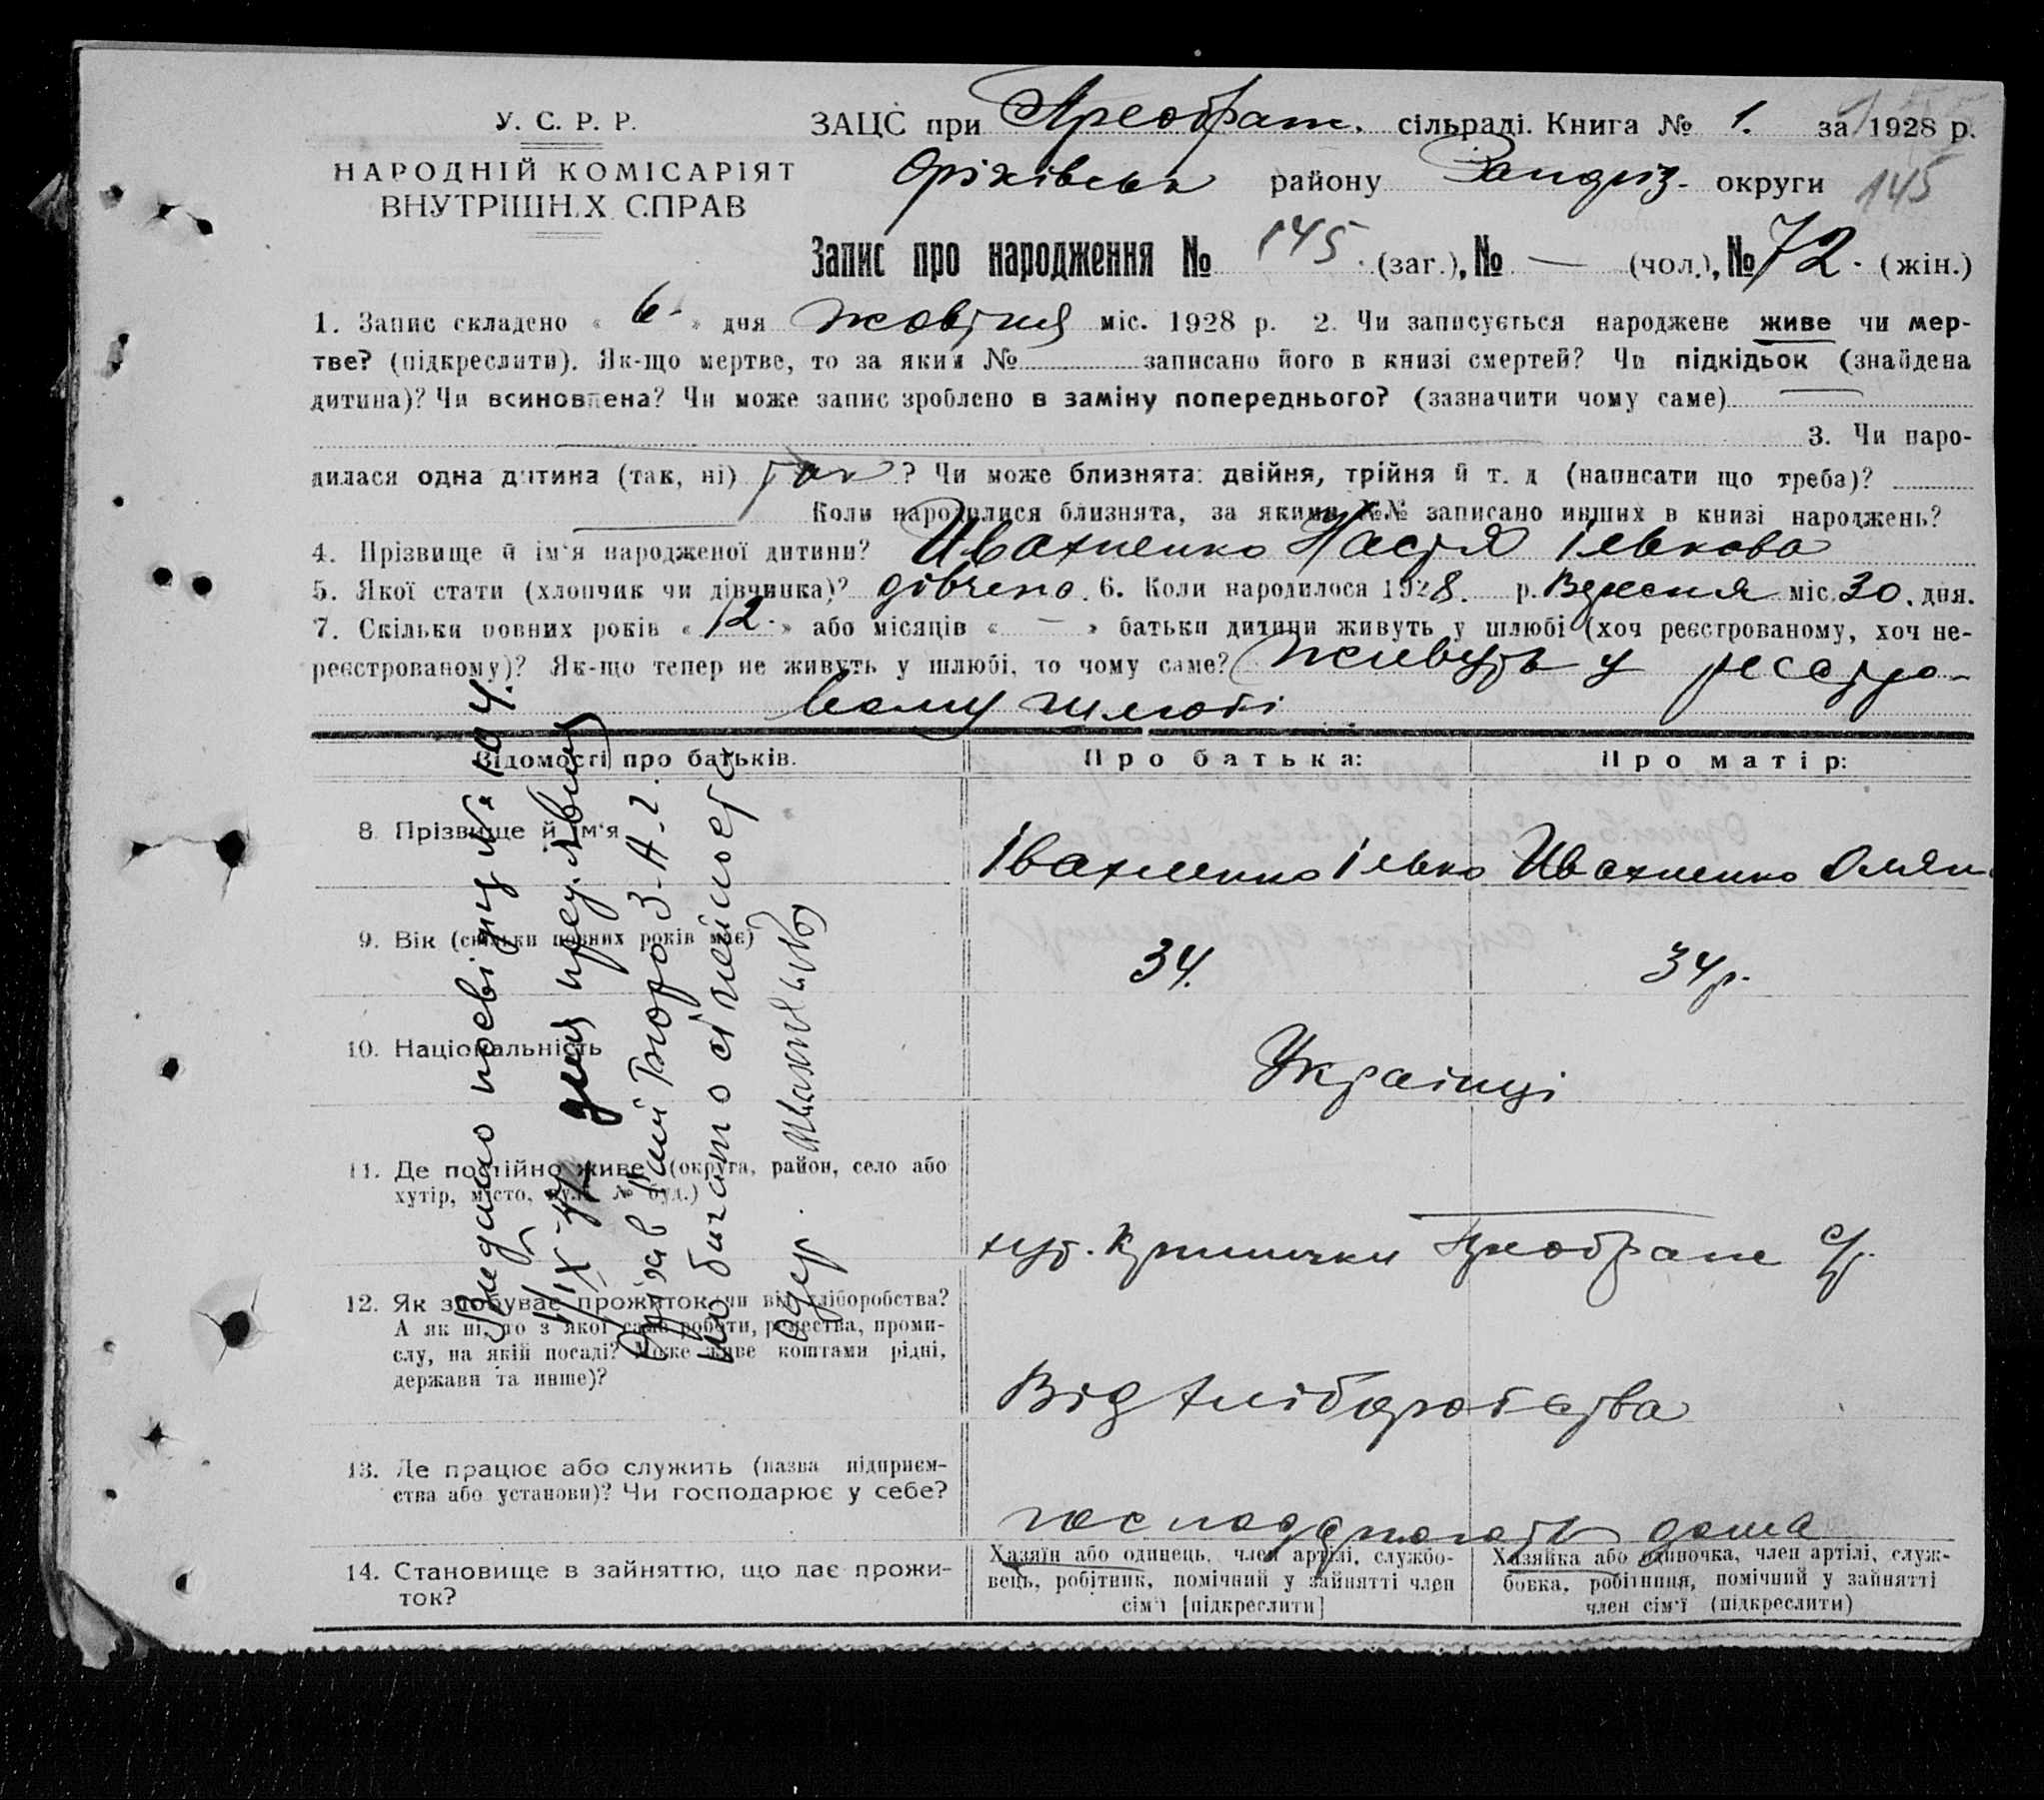 У. С. Р. Р.
НАРОДНІЙ КОМІСАРІЯТ
ВНУТРІШН.Х СПРАВ
ЗАЦС при Преображ. сільраді. Книга № 1. за 1928 р.
Оріхівськ району Запоріз- округи 145
Запис про народження № 145. (заг.), № — (чол.), № 72. (жін.)
1. Запис складено « 6 » дня жовтня міс. 1928 р. 2. Чи записується народжене живе чи мер-
тве? (підкреслити). Як-що мертве, то за яким № записано його в книзі смертей? Чи підкідьок (знайдена
дитина)? Чи всиновлена? Чи може запис зроблено в заміну попереднього? (зазначити чому саме) —
3. Чи наро-
дилася одна дитина (так, ні) так? Чи може близнята: двійня, трійня й т. д (написати що треба)?
Коли народилися близнята, за якими №№ записано инших в книзі народжень?
4. Прізвище й ім'я народженої дитини? Ивахненко Настя Ількова
5. Якої стати (хлопчик чи дівчинка)? дівчена. 6. Коли народилося 1928. р. Вересня міс. 30. дня.
7. Скільки повних років « 12. » або місяців « — » батьки дитини живуть у шлюбі (хоч реєстрованому, хоч не-
реєстрованому)? Як-що тепер не живуть у шлюбі, то чому саме? живуть у
вому шлюбі
Відомості про батьків.
Про батька:
Про матір:
8. Прізвище й ім'я
Івахненко Ілько
Ивахненко
9. Вік (скільки повних років має)
34.
34 р.
10. Національність
Українці
11. Де постійно живе (округа, район, село або
хутір, місто, вул. № буд.)
хут. Кринички Преображ с/р.
12. Як здобуває прожиток: чи від хліборобства?
А як ні, то з якої саме роботи, ремества, проми-
слу, на якій посаді? Може живе коштами рідні,
держави та инше)?
Від хліборобства
13. Де працює або служить (назва підприєм-
ства або установи)? Чи господарює у себе?
господарюють дома
14. Становище в зайняттю, що дає прожи-
ток?
Хазяїн або одинець, член артілі, службо-
вець, робітник, помічний у зайнятті член
сім'ї [підкреслити]
Хазяйка або одиночка, член артілі, служ-
бовка, робітниця, помічний у зайнятті
член сім'ї (підкреслити)
Видано посвідку №
для